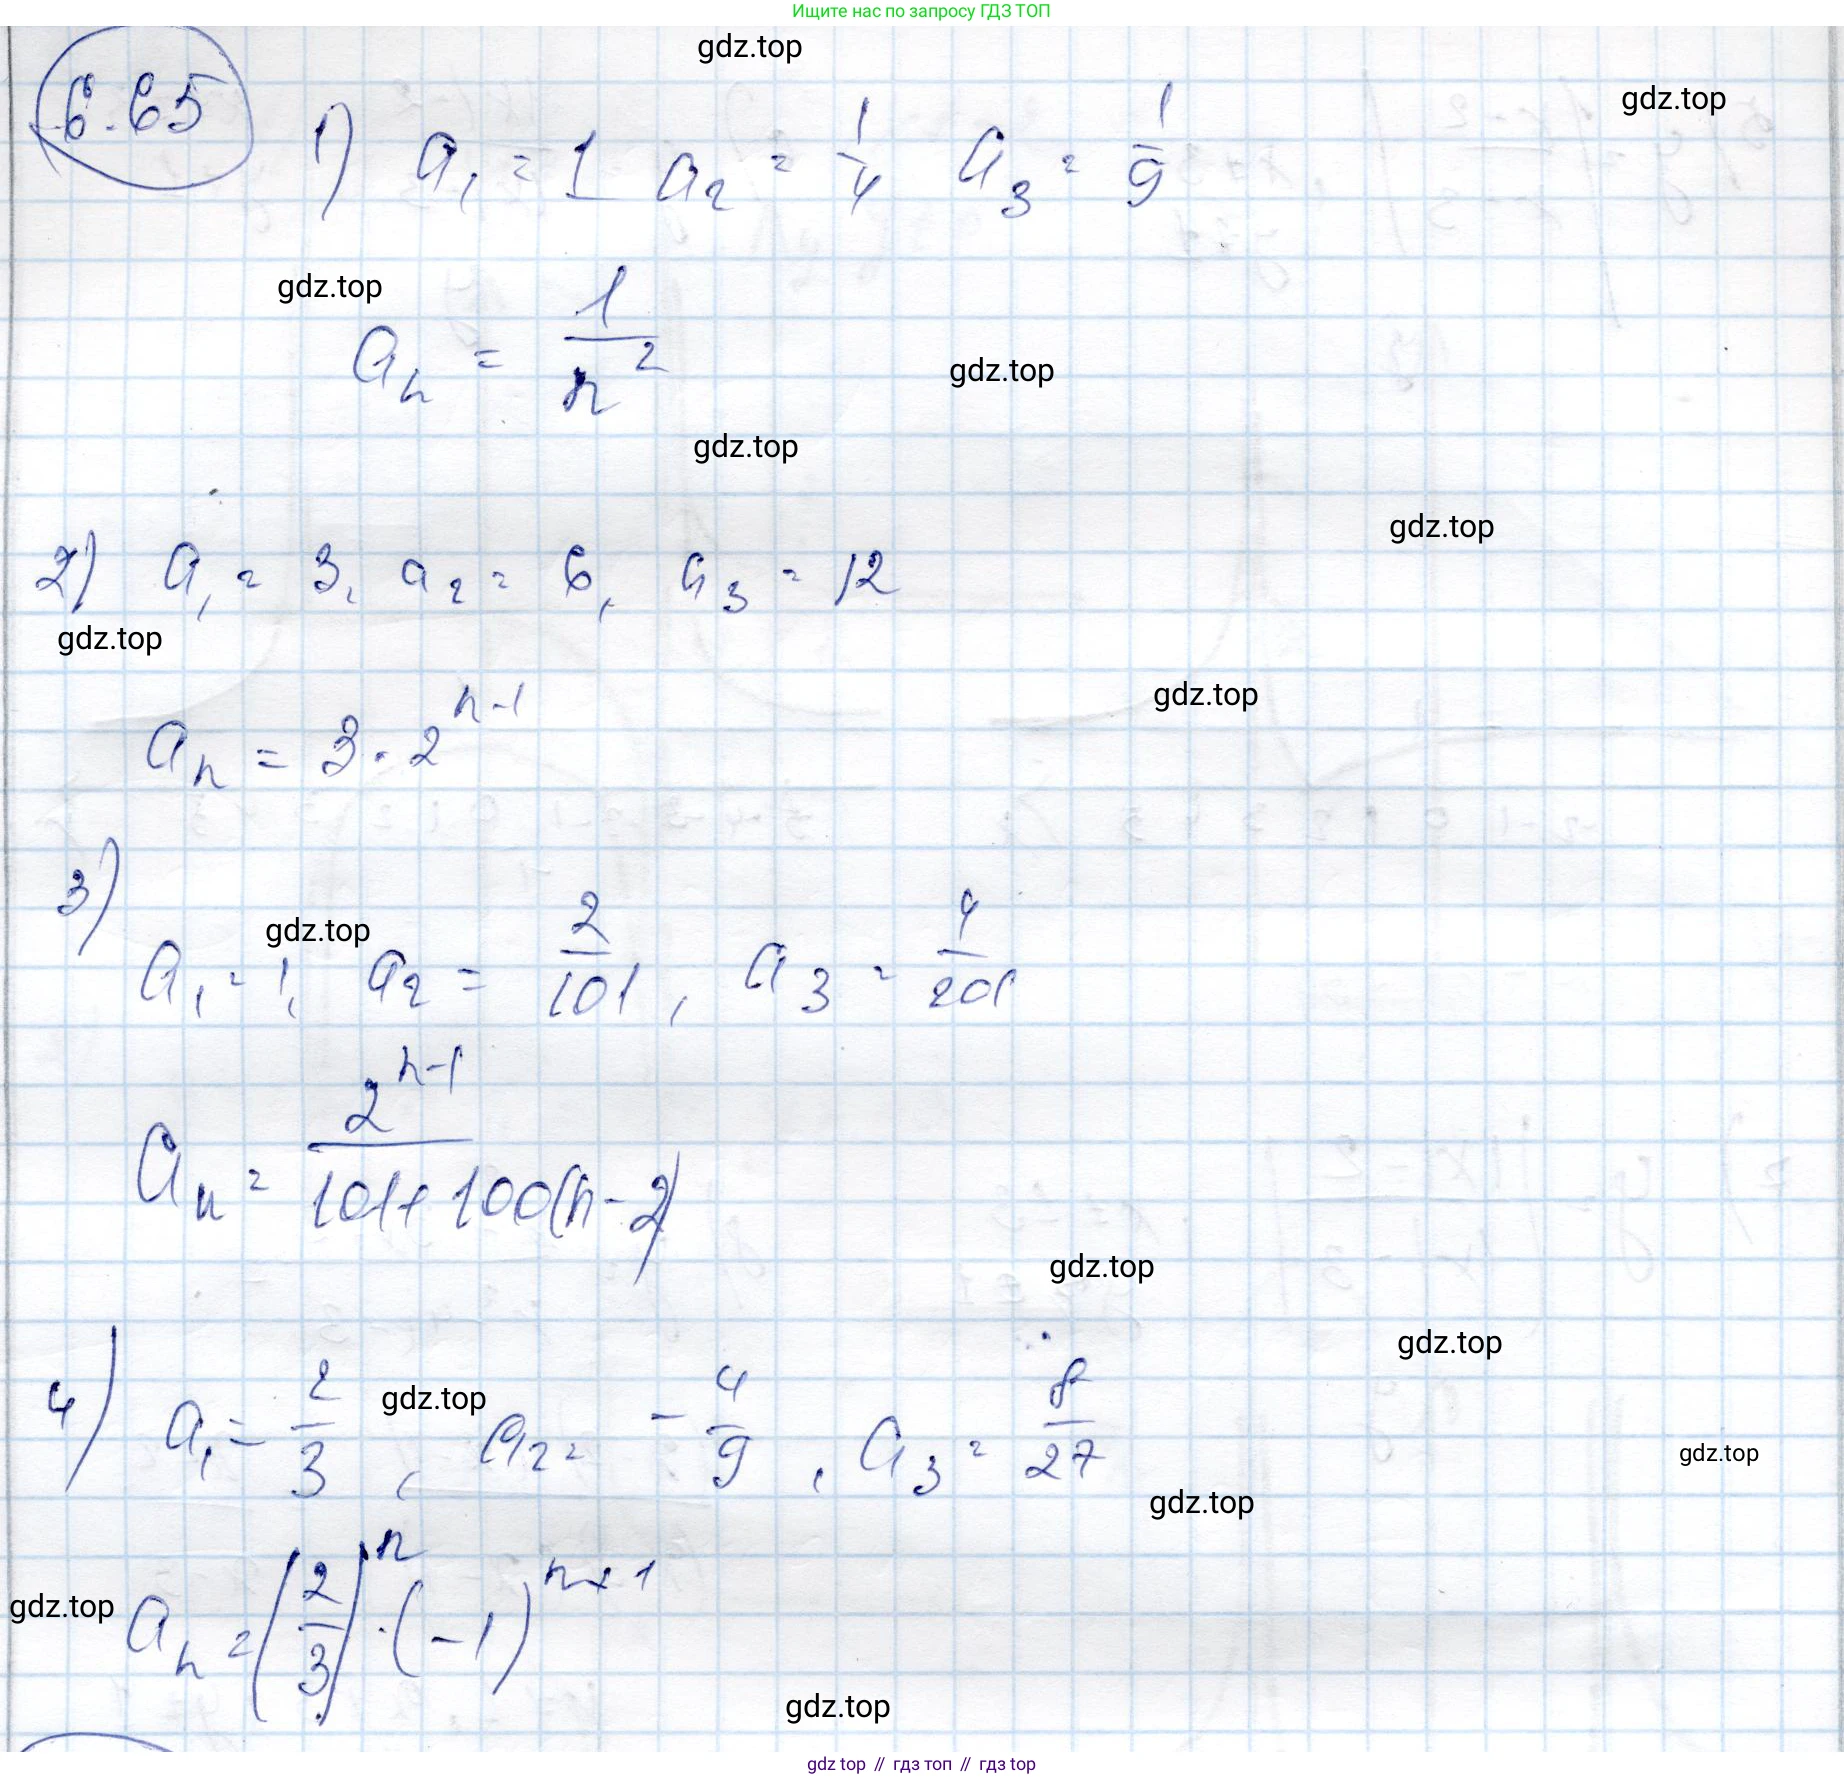 Ищите нас по запросу ГДЗ ТОП
gdz.top
gdz.top
6.65 1) a₁ = 1 a₂ = 1/4 a₃ = 1/9
gdz.top
aₙ = 1/n²
gdz.top
gdz.top
gdz.top
2) a₁ = 3, a₂ = 6, a₃ = 12
gdz.top
gdz.top
aₙ = 3 · 2ⁿ⁻¹
3)
gdz.top
a₁ = 1, a₂ = 2/101, a₃ = 4/201
aₙ = 2ⁿ⁻¹/(101+100(n-2))
gdz.top
gdz.top
4) a₁ = 2/3, a₂ = -4/9, a₃ = 8/27
gdz.top
gdz.top
gdz.top
gdz.top
aₙ = (2/3)ⁿ · (-1)ⁿ⁺¹
gdz.top
gdz top // гдз топ // гдз top